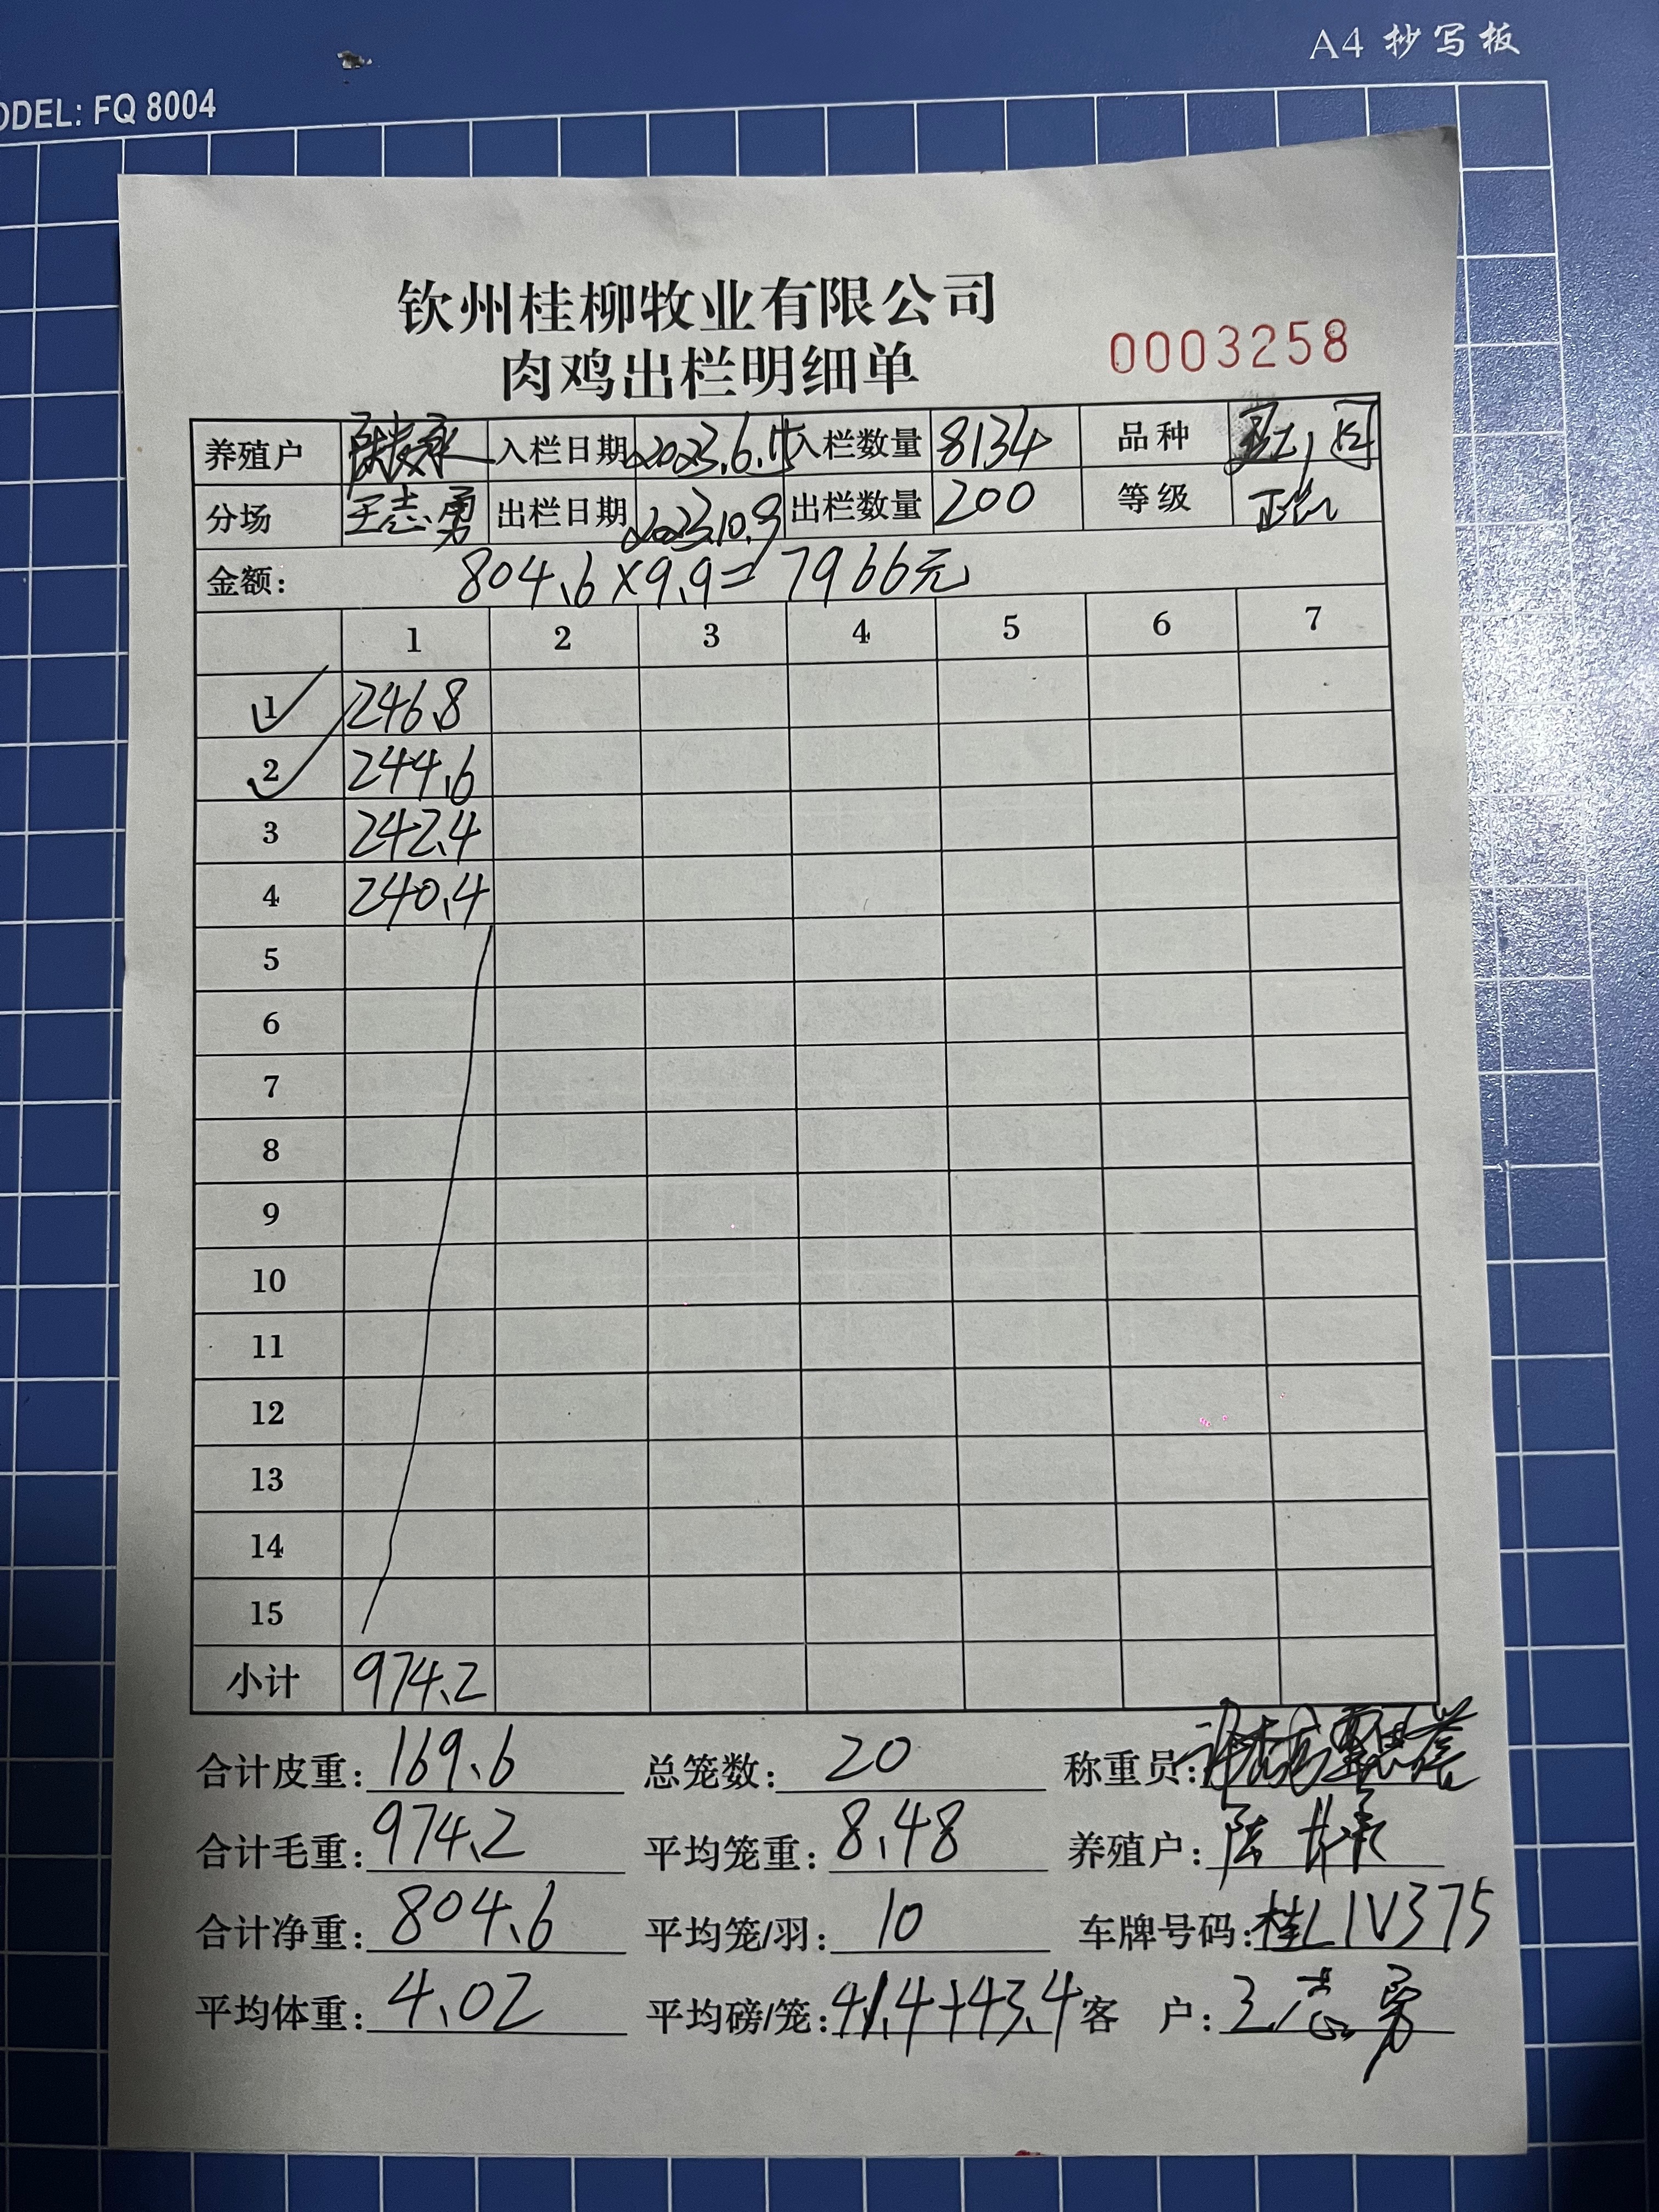 A4 抄写板
ODEL: FQ 8004
钦州桂柳牧业有限公司
肉鸡出栏明细单
0003258
养殖户 入栏日期 2023.6.15 入栏数量 8134 品种
分场 王志勇 出栏日期 2023.10.9 出栏数量 200 等级
金额: 804.6×9.9=7966元
1 2 3 4 5 6 7
1 246.8
2 244.6
3 242.4
4 240.4
5
6
7
8
9
10
11
12
13
14
15
小计 974.2
合计皮重: 169.6 总笼数: 20 称重员:
合计毛重: 974.2 平均笼重: 8.48 养殖户:
合计净重: 804.6 平均笼/羽: 10 车牌号码: 桂L1V375
平均体重: 4.02 平均磅/笼: 41.4+43.4 客 户: 王志勇